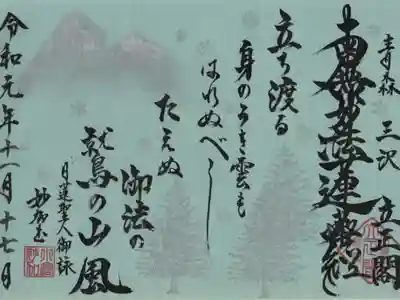 青森 三沢 立正閣
南無妙法蓮華経
立ち渡る
身のうき雲も
はれぬべし
たえぬ
御法の
鷲の山風
日蓮聖人御詠
令和元年十一月十七日